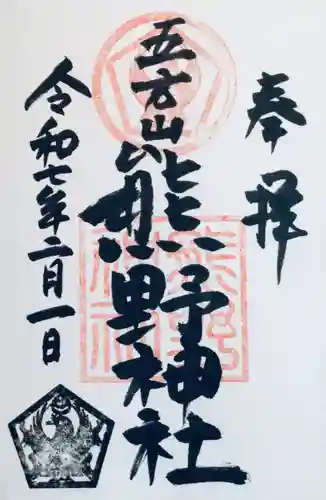 奉拝
五方山熊野神社
令和七年二月一日
熊野神社